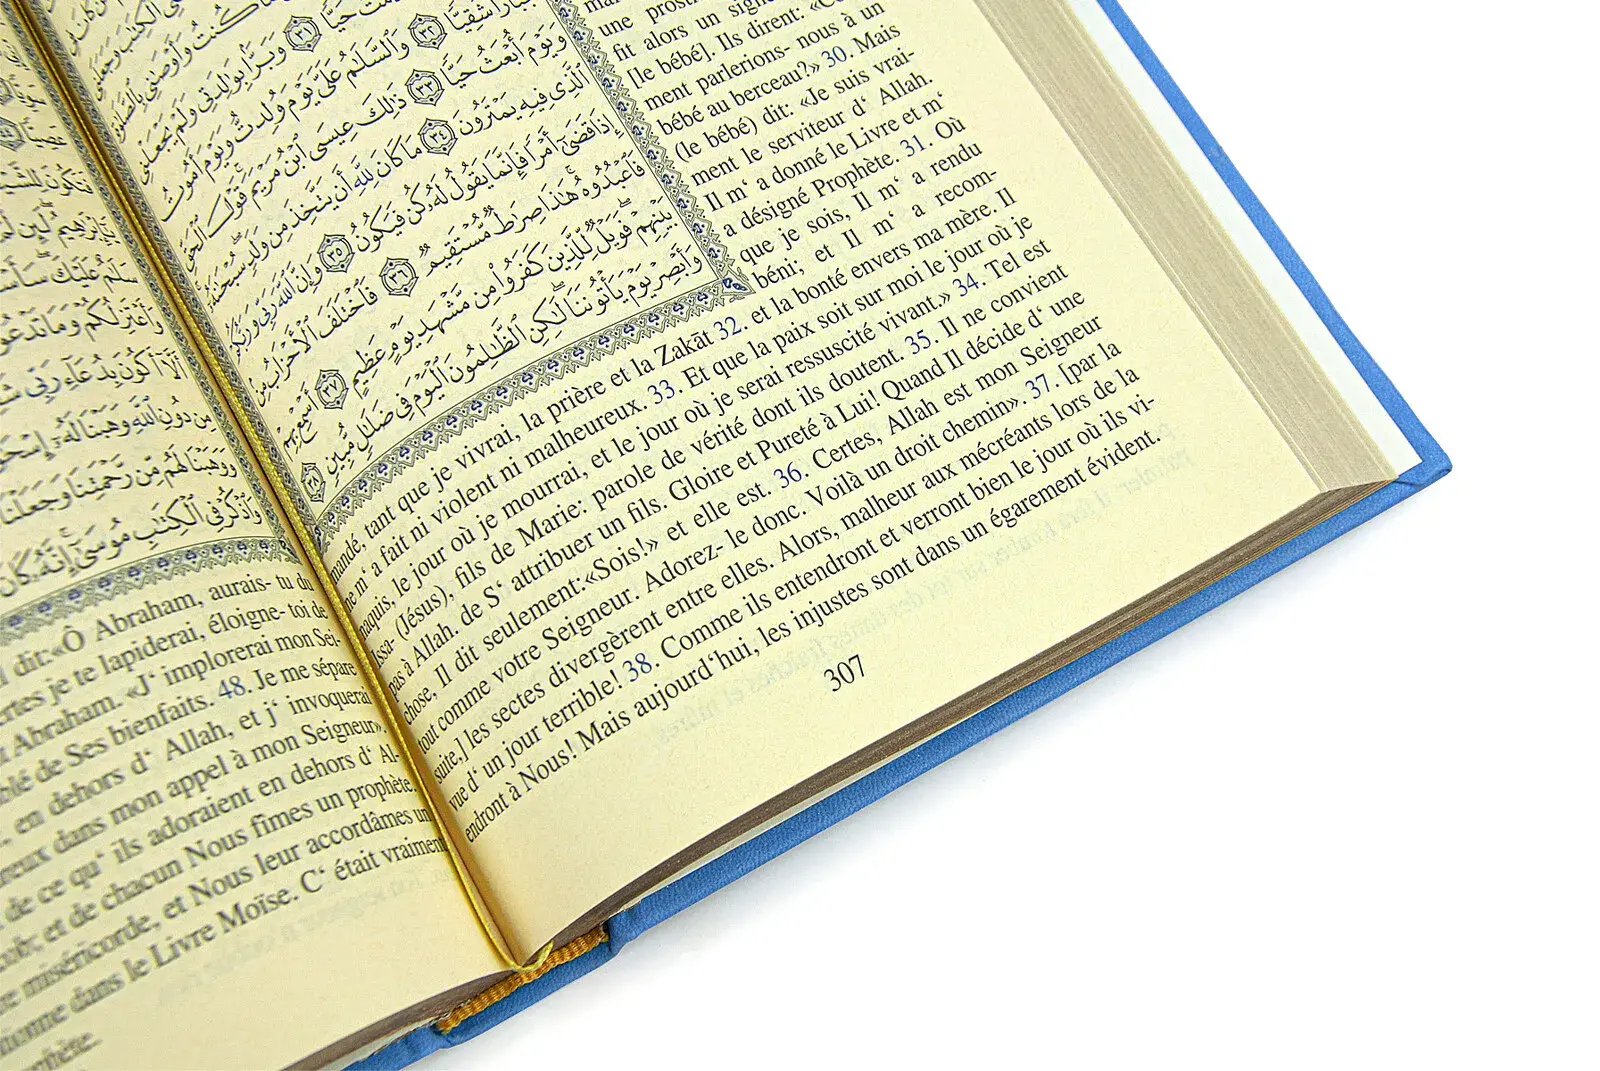 مَا كُنتُ وَأَوْصَٰنِى بِٱلصَّلَوٰةِ
دُمْتُ حَيًّا ٣١ وَبَرًّۢا بِوَٰلِدَتِى وَلَمْ يَجْعَلْنِى
جَبَّارًا شَقِيًّا ٣٢ وَٱلسَّلَٰمُ عَلَىَّ يَوْمَ وُلِدتُّ وَيَوْمَ أَمُوتُ
وَيَوْمَ أُبْعَثُ حَيًّا ٣٣ ذَٰلِكَ عِيسَى ٱبْنُ مَرْيَمَ قَوْلَ ٱلْحَقِّ
ٱلَّذِى فِيهِ يَمْتَرُونَ ٣٤ مَا كَانَ لِلَّهِ أَن يَتَّخِذَ مِن وَلَدٍ سُبْحَٰنَهُۥٓ
إِذَا قَضَىٰٓ أَمْرًا فَإِنَّمَا يَقُولُ لَهُۥ كُن فَيَكُونُ ٣٥ وَإِنَّ ٱللَّهَ رَبِّى وَرَبُّكُمْ
فَٱعْبُدُوهُ هَٰذَا صِرَٰطٌ مُّسْتَقِيمٌ ٣٦ فَٱخْتَلَفَ ٱلْأَحْزَابُ مِنۢ
بَيْنِهِمْ فَوَيْلٌ لِّلَّذِينَ كَفَرُوا۟ مِن مَّشْهَدِ يَوْمٍ عَظِيمٍ ٣٧ أَسْمِعْ بِهِمْ
وَأَبْصِرْ يَوْمَ يَأْتُونَنَا لَٰكِنِ ٱلظَّٰلِمُونَ ٱلْيَوْمَ فِى ضَلَٰلٍ مُّبِينٍ ٣٨
fit alors un signe
[le bébé]. Ils dirent: «Com
ment parlerions- nous à un
bébé au berceau?» 30. Mais
(le bébé) dit: «Je suis vrai-
ment le serviteur d‘ Allah.
Il m‘ a donné le Livre et m‘
a désigné Prophète. 31. Où
que je sois, Il m‘ a rendu
béni; et Il m‘ a recom-
mandé, tant que je vivrai, la prière et la Zakāt 32. et la bonté envers ma mère. Il
ne m‘ a fait ni violent ni malheureux. 33. Et que la paix soit sur moi le jour où je
naquis, le jour où je mourrai, et le jour où je serai ressuscité vivant.» 34. Tel est
Issa- (Jésus), fils de Marie: parole de vérité dont ils doutent. 35. Il ne convient
pas à Allah. de S‘ attribuer un fils. Gloire et Pureté à Lui! Quand Il décide d‘ une
chose, Il dit seulement:«Sois!» et elle est. 36. Certes, Allah est mon Seigneur
tout comme votre Seigneur. Adorez- le donc. Voilà un droit chemin». 37. [par la
suite,] les sectes divergèrent entre elles. Alors, malheur aux mécréants lors de la
vue d‘ un jour terrible! 38. Comme ils entendront et verront bien le jour où ils vi-
endront à Nous! Mais aujourd‘hui, les injustes sont dans un égarement évident.
307
سَلَٰمٌ عَلَيْكَ سَأَسْ
وَأَعْتَزِلُكُمْ وَمَا تَدْعُو
أَلَّآ أَكُونَ بِدُعَآءِ رَبِّى شَ
مِن دُونِ ٱللَّهِ وَهَبْنَا لَهُۥٓ إِسْحَ
وَوَهَبْنَا لَهُم مِّن رَّحْمَتِنَا وَجَعَلْنَا
وَٱذْكُرْ فِى ٱلْكِتَٰبِ مُوسَىٰٓ إِنَّهُۥ كَانَ
dit:«Ô Abraham, aurais- tu du
ertes je te lapiderai, éloigne- toi de
Abraham. «J‘ implorerai mon Sei-
de Ses bienfaits. 48. Je me sépare
en dehors d‘ Allah, et j‘ invoquerai
reux dans mon appel à mon Seigneur».
de ce qu‘ ils adoraient en dehors d‘ Al-
et de chacun Nous fîmes un prophète.
miséricorde, et Nous leur accordâmes un
ionne dans le Livre Moïse. C‘ était vraiment